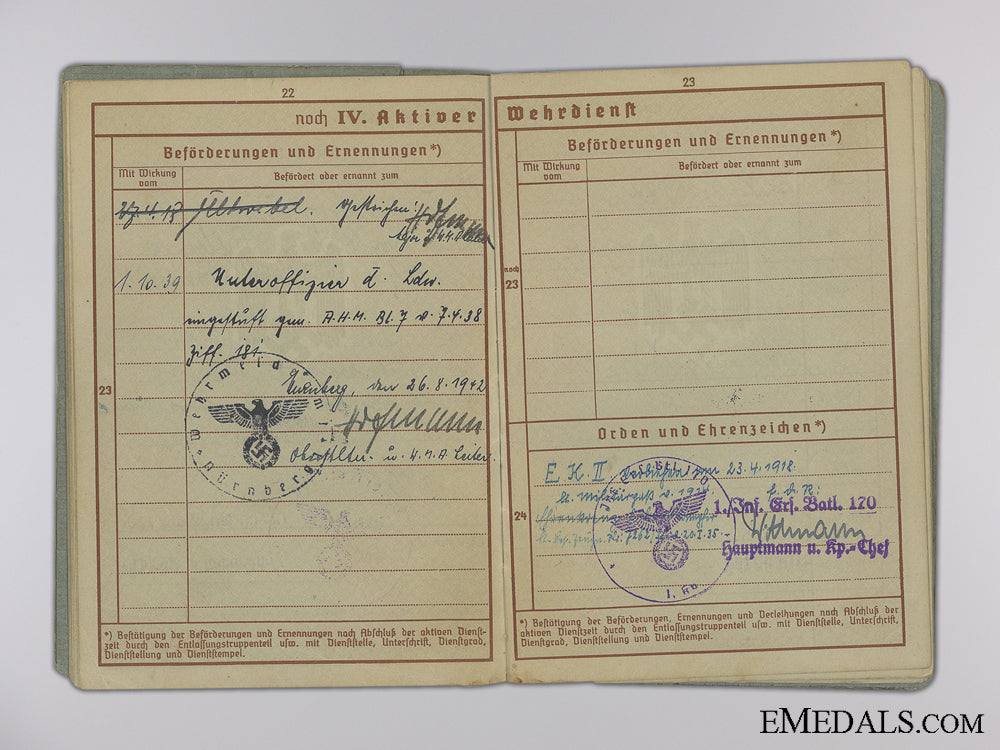 22
noch IV. Aktiver
Beförderungen und Ernennungen*)
Mit Wirkung vom
Befördert oder ernannt zum
gestrichen!
1.10.39 Unteroffizier d. Ldw.
eingestuft gem. A.H.M. Bl. 7 v. 7.4.38
Ziff. 181.
23
Nürnberg, den 26.8.1942
Wehrmeldeamt
Nürnberg
Oberstltn. u. W.M.A. Leiter.
*) Bestätigung der Beförderungen und Ernennungen nach Abschluß der aktiven Dienst-
zeit durch den Entlassungstruppenteil usw. mit Dienststelle, Unterschrift, Dienstgrad,
Dienststellung und Dienststempel.
23
Wehrdienst
Beförderungen und Ernennungen*)
Mit Wirkung vom
Befördert oder ernannt zum
noch
23
Orden und Ehrenzeichen*)
24
E.K. II verliehen am 23.4.1918.
lt. Militärpaß v.
F. d. R:
1./Inf. Ers. Batl. 170
20.I.35
Hauptmann u. Kp.-Chef
*) Bestätigung der Beförderungen, Ernennungen und Verleihungen nach Abschluß der
aktiven Dienstzeit durch den Entlassungstruppenteil usw. mit Dienststelle, Unterschrift,
Dienstgrad, Dienststellung und Dienststempel.
EMEDALS.COM